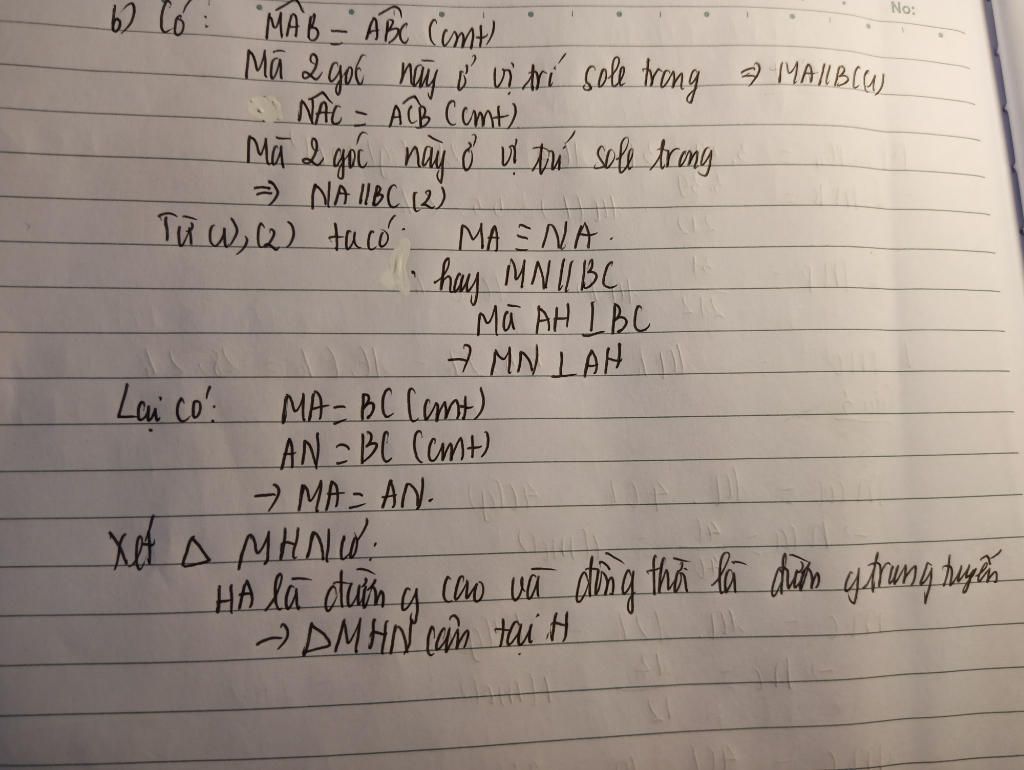 No:
b) Có: M̂AB = ÂBC (cmt)
Mà 2 góc này ở vị trí sole trong ⇒ MA//BC(1)
N̂AC = ÂCB (cmt)
Mà 2 góc này ở vị trí sole trong
⇒ NA//BC (2)
Từ (1), (2) ta có: MA ≡ NA.
hay MN//BC
Mà AH ⊥ BC
→ MN ⊥ AH
Lại có: MA = BC (cmt)
AN = BC (cmt)
→ MA = AN.
Xét Δ MHN có:
HA là đường cao và đồng thời là đường trung tuyến
→ ΔMHN cân tại H